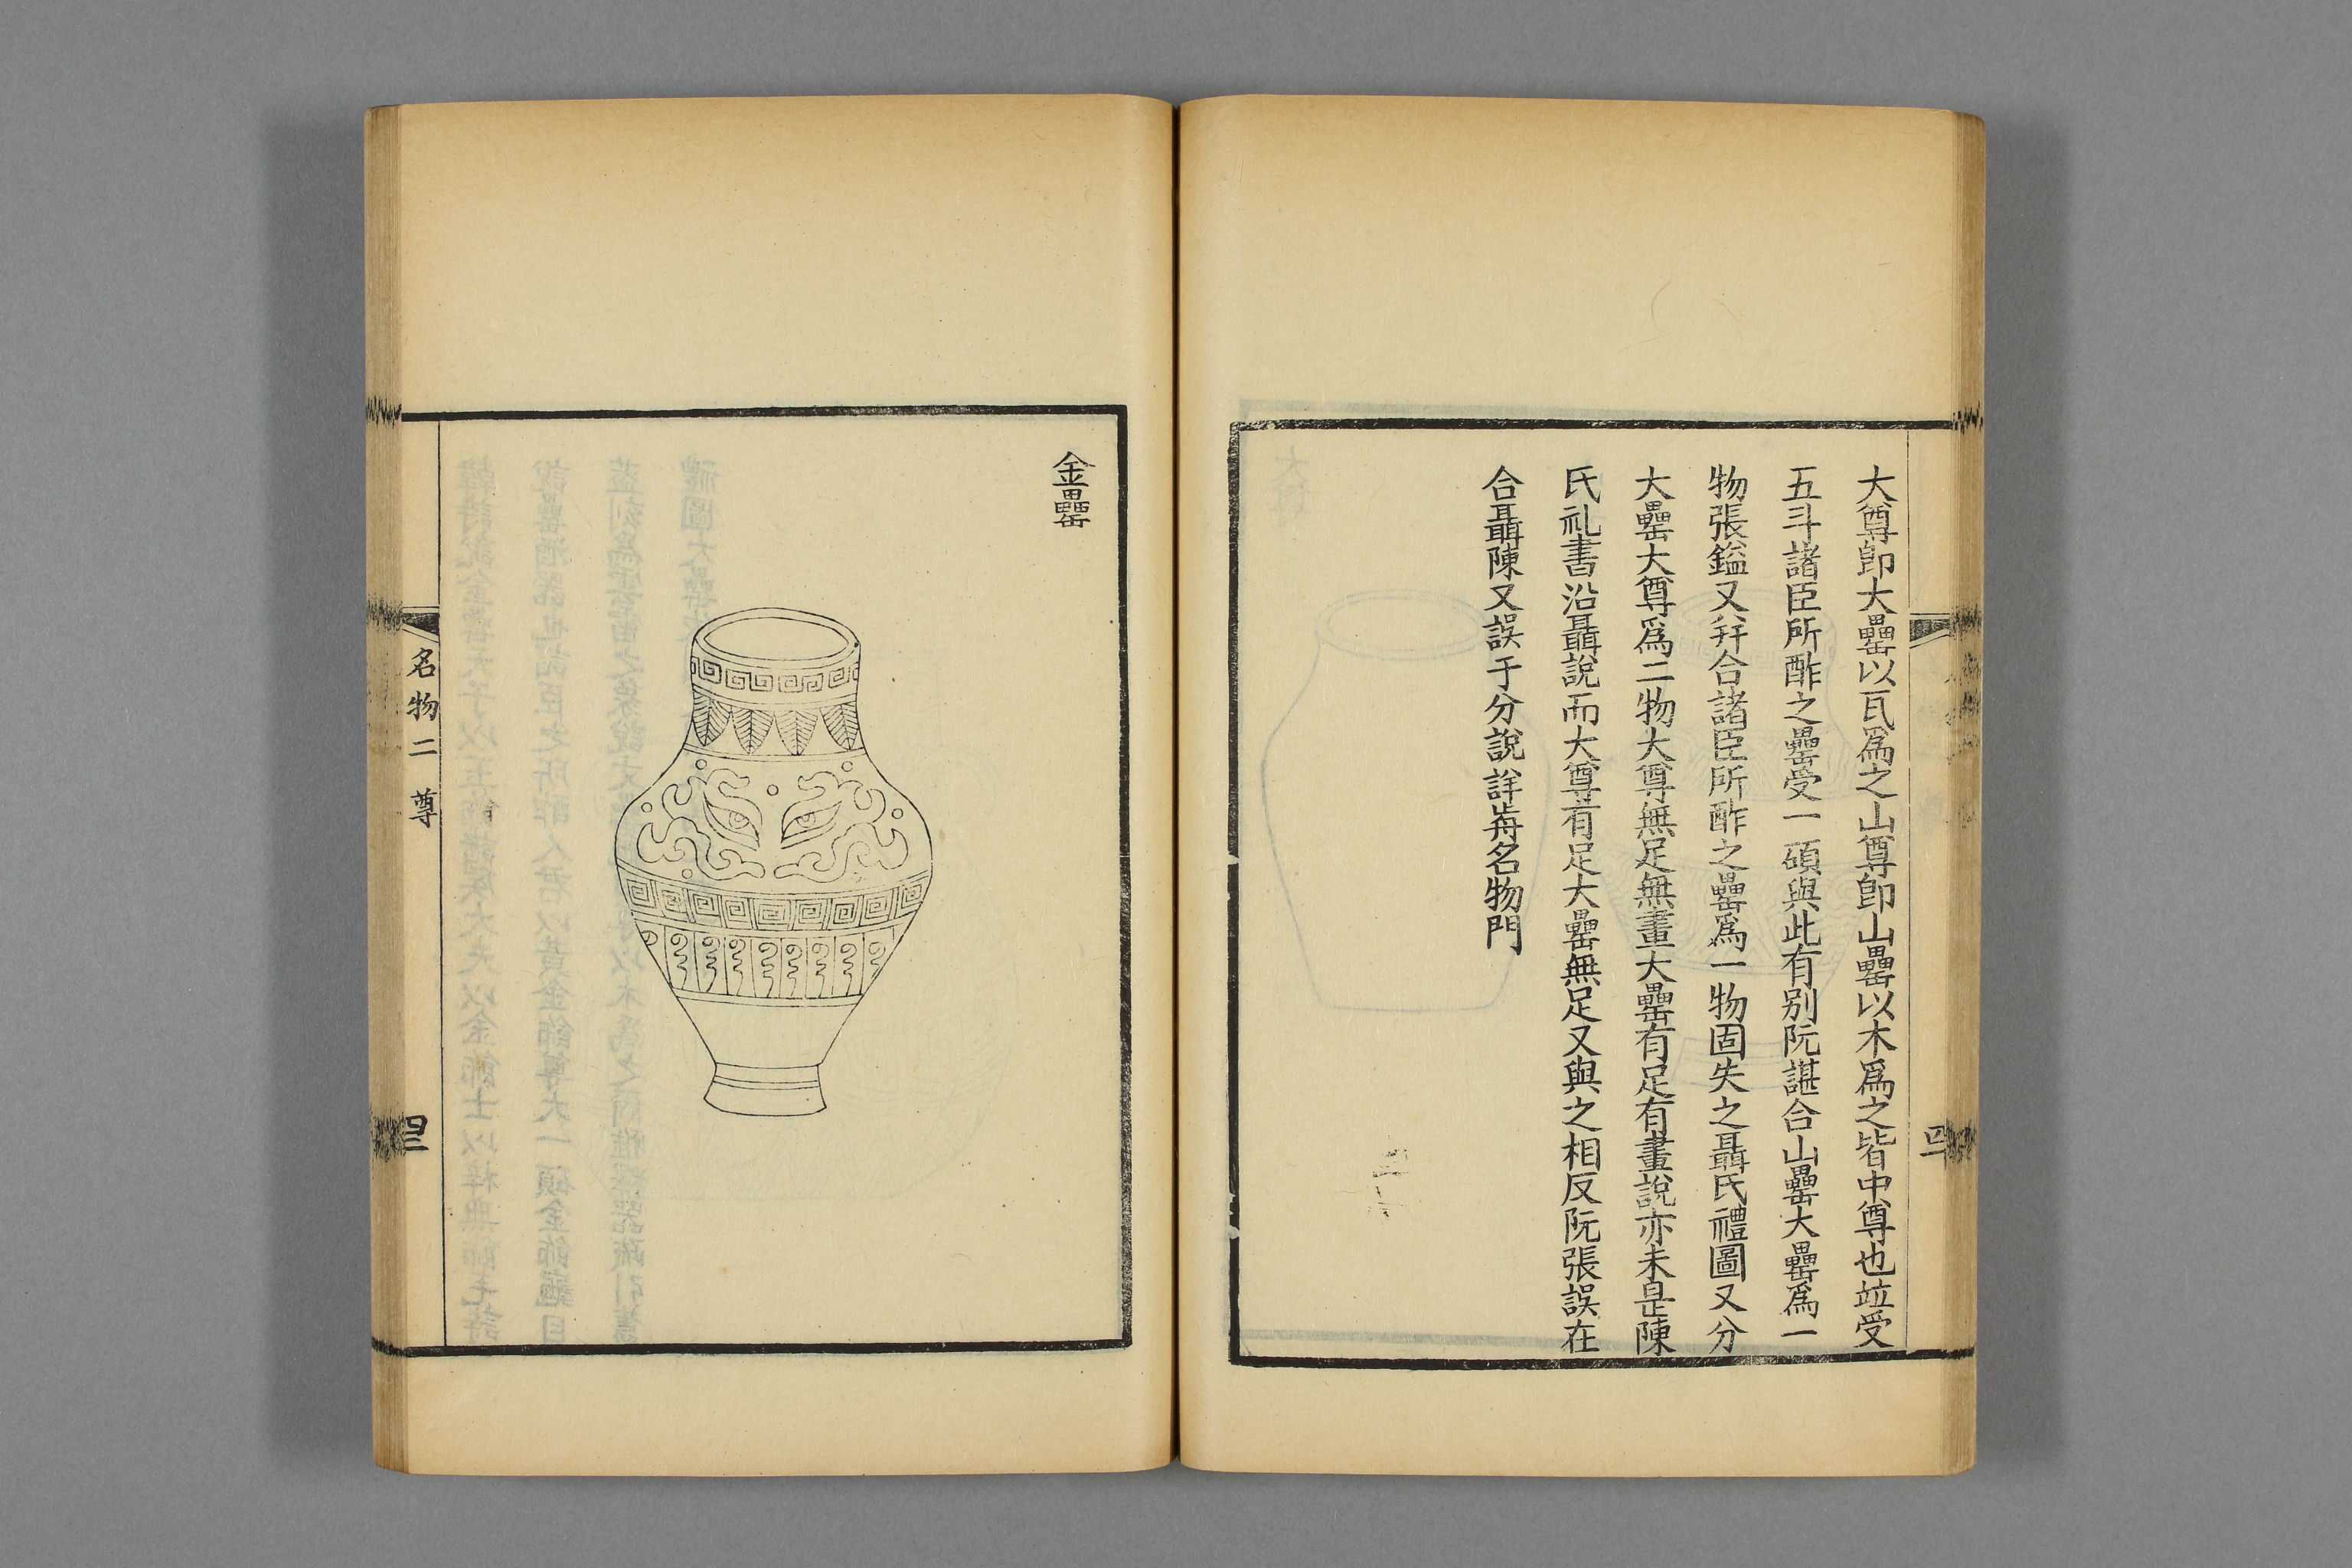 大尊卽大罍以瓦爲之山尊卽山罍以木爲之皆中尊也竝受
五斗諸臣所酢之罍受一碩與此有别阮諶合山罍大罍爲一
物張鎰又幷合諸臣所酢之罍爲一物固失之聶氏禮圖又分
大罍大尊爲二物大尊無足無畫大罍有足有畫說亦未是陳
氏礼書沿聶說而大尊有足大罍無足又與之相反阮張誤在
合聶陳又誤于分說詳歬名物門
金罍
名物二 尊